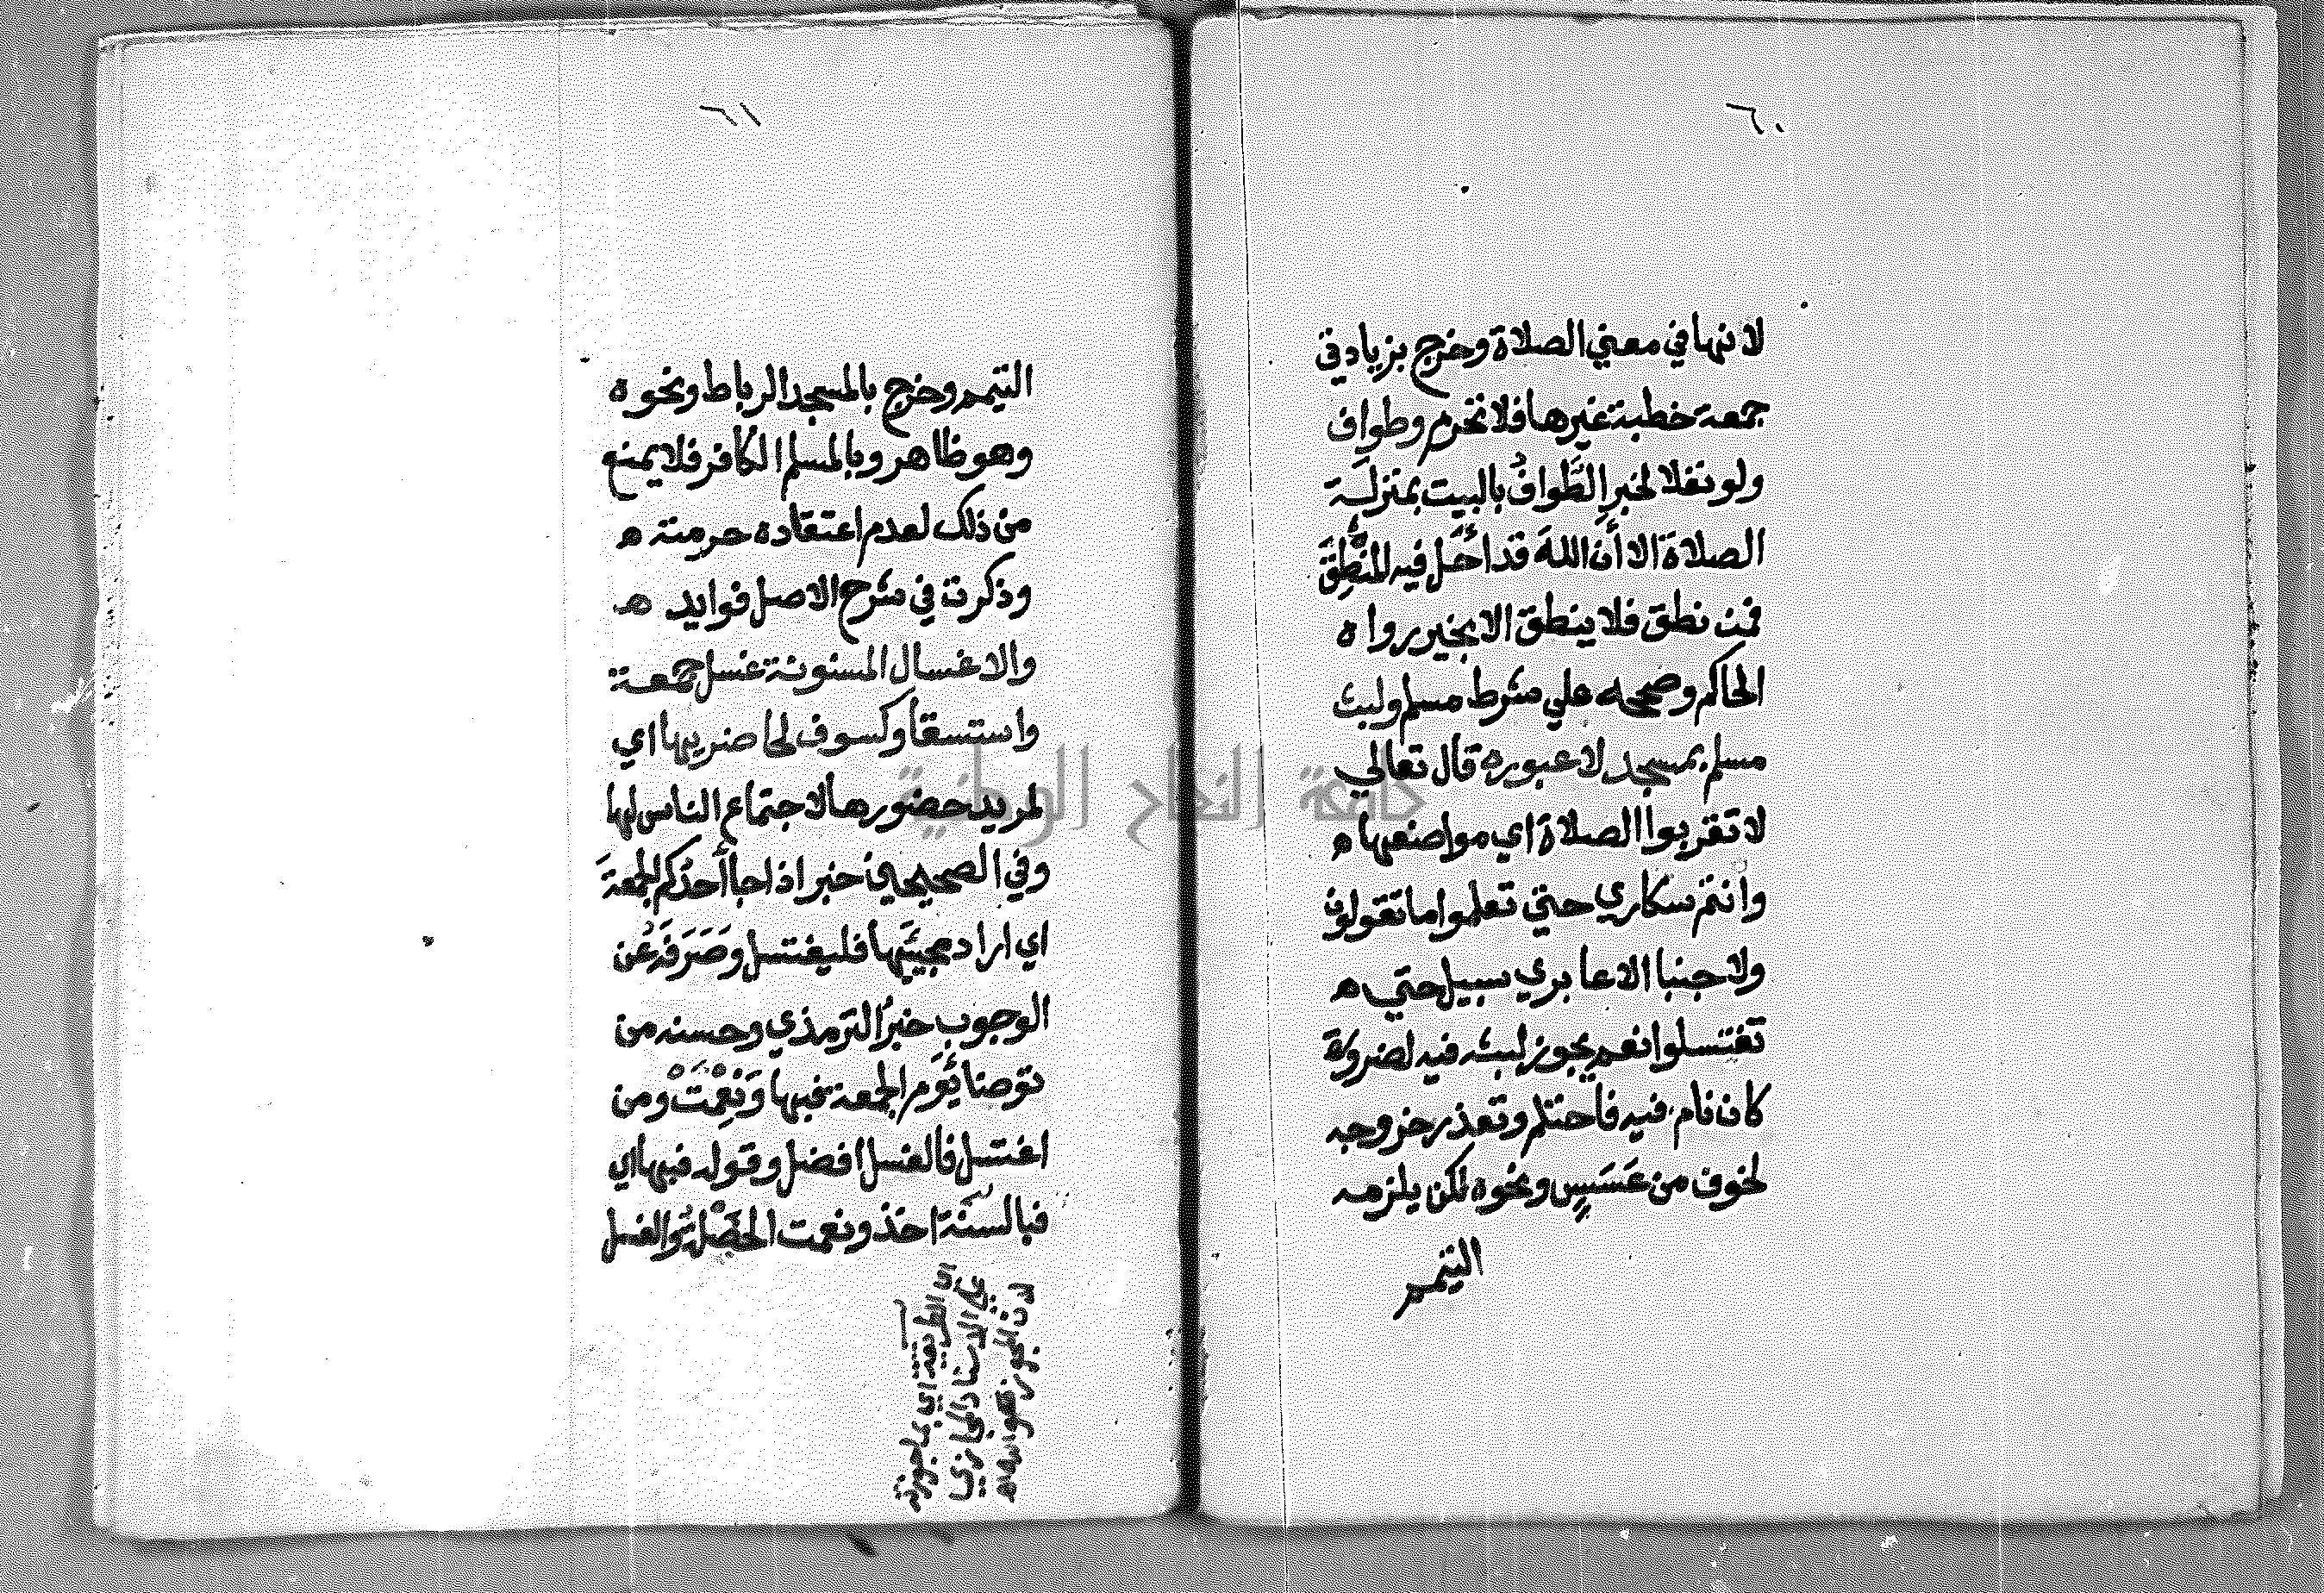 ٦٠
لانها في معني الصلاة وخرج بزيادتي
جمعة خطبة غيرها فلا تحرم وطواف
ولو نفلا لخبر الطَّوافُ بالبيت بمنزلة
الصلاة الا أن اللهَ قد احَل فيه المنْطِقَ
فمن نطق فلا ينطق الا بخير رواه
الحاكم وصححه علي شرط مسلم ولبث
مسلم بمسجد لا عبوره قال تعالي
لا تقربوا الصلاة اي مواضعها ه
وانتم سكاري حتي تعلموا ما تقولون
ولا جنبا الا عابري سبيل حتي ه
تغتسلوا نعم يجوز لبثه فيه لضرورة
كان نام فيه فاحتلم وتعذر خروجه
لخوف من عَسَسٍ ونحوه لكن يلزمه
التيمم
٦١
التيمم وخرج بالمسجد الرباط ونحوه
وهو ظاهر وبالمسلم الكافر فلا يمنع
من ذلك لعدم اعتقاده حرمته ه
وذكرت في شرح الاصل فوايد ه
والاغسال المسنونة غسل جمعة
واستسقا وكسوف لحاضريها اي
لمريد حضورها لاجتماع الناس لها
وفي الصحيحين خبر اذا جا أحدُكم الجمعةَ
اي اراد مجيئَها فليغتسل وصَرَفَه عَن
الوجوب خبرُ الترمذي وحسنه من
توضا يَوْم الجمعة فبها وَنِعْمَتْ ومن
اغتسل فالغسل افضل وقوله فبها اي
فبالسنَّة اخذ ونعمت الخصْلة والغسل
جامعة النجاح الوطنية